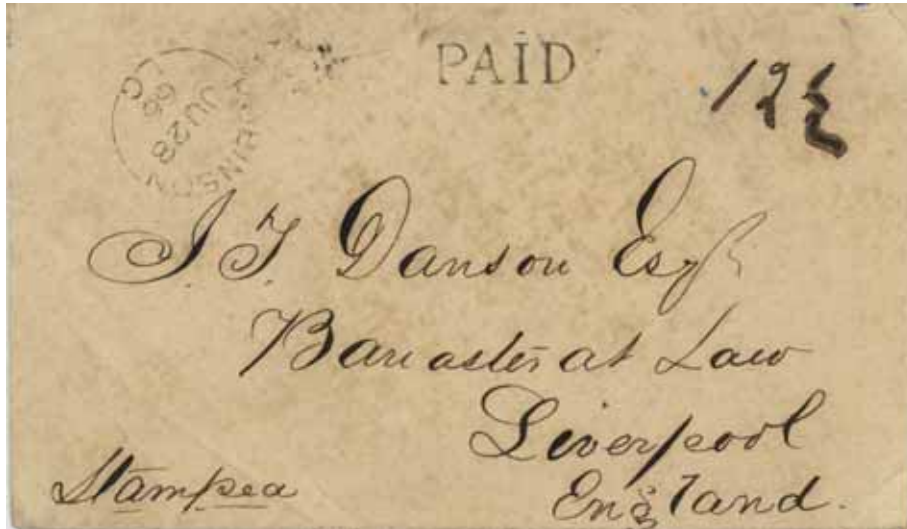 PAID
12½
JU 28
66
C
J. T. Danson Esqr
Barraster at Law
Liverpool
England.
Stamped